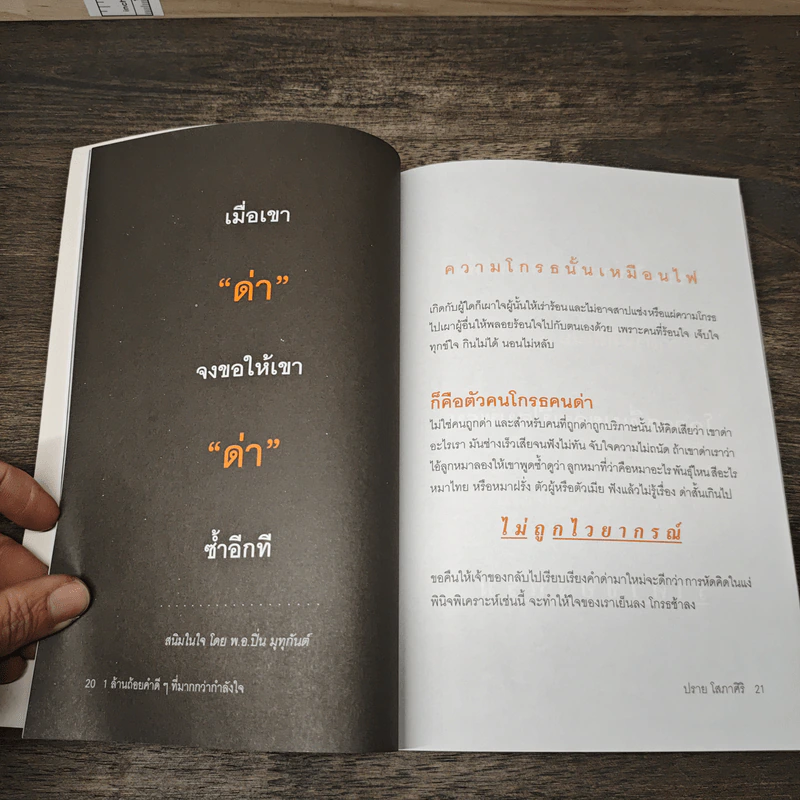 เมื่อเขา
“ด่า”
จงขอให้เขา
“ด่า”
ซ้ำอีกที
สนิมในใจ โดย พ.อ.ปิ่น มุทุกันต์
20 1 ล้านถ้อยคำดี ๆ ที่มากกว่ากำลังใจ
ความโกรธนั้นเหมือนไฟ
เกิดกับผู้ใดก็เผาใจผู้นั้นให้เร่าร้อน และไม่อาจสาปแช่งหรือแผ่ความโกรธ
ไปเผาผู้อื่นให้พลอยร้อนใจไปกับตนเองด้วย เพราะคนที่ร้อนใจ เจ็บใจ
ทุกข์ใจ กินไม่ได้ นอนไม่หลับ
ก็คือตัวคนโกรธคนด่า
ไม่ใช่คนถูกด่า และสำหรับคนที่ถูกด่าถูกบริภาษนั้น ให้คิดเสียว่า เขาด่า
อะไรเรา มันช่างเร็วเสียจนฟังไม่ทัน จับใจความไม่ถนัด ถ้าเขาด่าเราว่า
ไอ้ลูกหมาลองให้เขาพูดซ้ำดูว่า ลูกหมาที่ว่าคือหมาอะไร พันธุ์ไหน สีอะไร
หมาไทย หรือหมาฝรั่ง ตัวผู้หรือตัวเมีย ฟังแล้วไม่รู้เรื่อง ด่าสั้นเกินไป
ไม่ถูกไวยากรณ์
ขอคืนให้เจ้าของกลับไปเรียบเรียงคำด่ามาใหม่จะดีกว่า การหัดคิดในแง่
พินิจพิเคราะห์เช่นนี้ จะทำให้ใจของเราเย็นลง โกรธช้าลง
ปราย โสภาศิริ 21